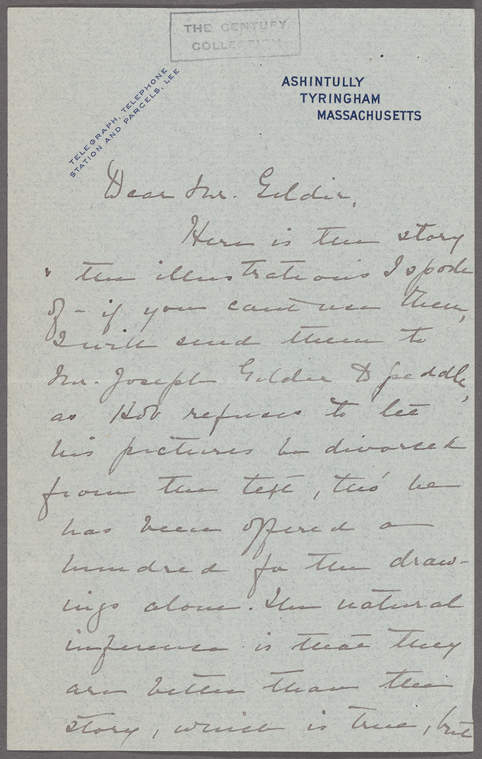 THE CENTURY
COLLECTION
TELEGRAPH, TELEPHONE
STATION AND PARCELS, LEE
ASHINTULLY
TYRINGHAM
MASSACHUSETTS
Dear Mr. Gilder,
Here is the story
& the illustrations I spoke
of – if you cant use them,
I will send them to
Mr. Joseph Gilder to peddle,
as Rob refuses to let
his pictures be divorced
from the text, tho' he
has been offered a
hundred for the draw-
ings alone. The natural
inference is that they
are better than the
story, which is true, but